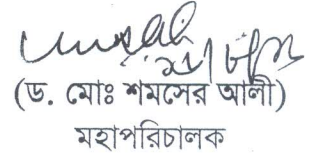 (ড. মোঃ শমসের আলী)
মহাপরিচালক